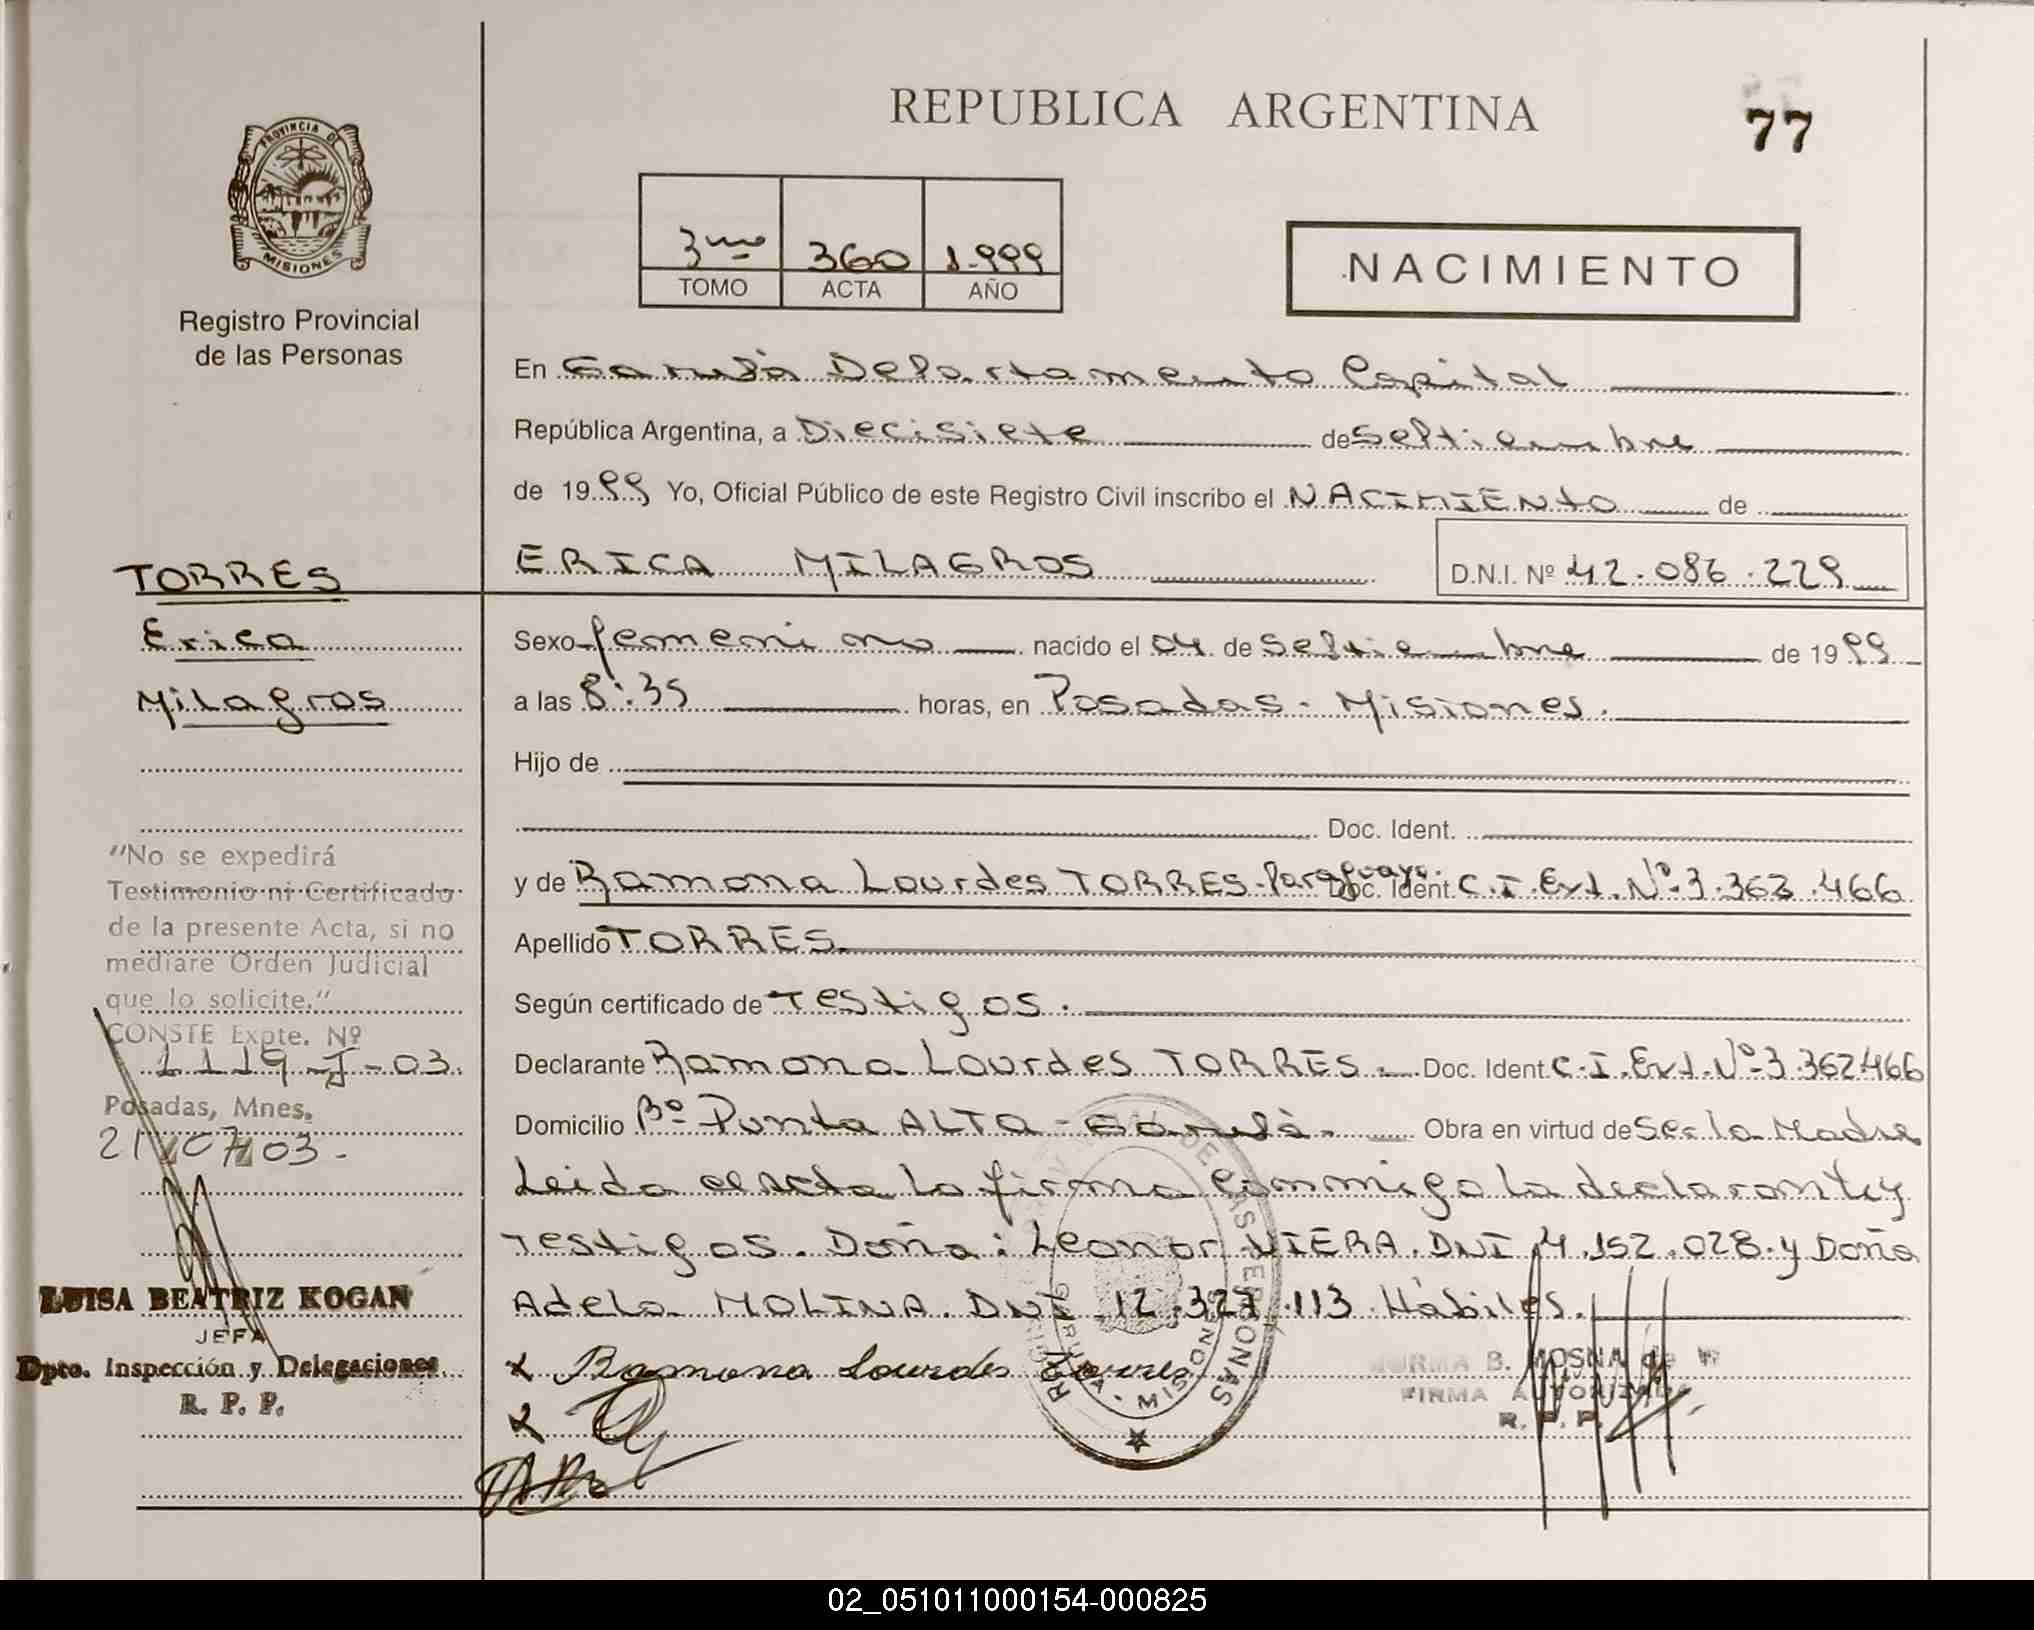 REPUBLICA ARGENTINA
77
PROVINCIA DE
MISIONES
Registro Provincial
de las Personas
3ro 360 1.999
TOMO ACTA AÑO
NACIMIENTO
En Garupá Departamento Capital
República Argentina, a Diecisiete de Septiembre
de 1999 Yo, Oficial Público de este Registro Civil inscribo el NACIMIENTO de
ERICA MILAGROS
D.N.I. Nº 42.086.229
TORRES
Erica
Milagros
Sexo femenino nacido el 04 de Septiembre de 1999
a las 8:35 horas, en Posadas - Misiones.
Hijo de
Doc. Ident.
y de Ramona Lourdes TORRES - Paraguaya. Doc. Ident. C.I.Ext.Nº 3.362.466
Apellido TORRES.
Según certificado de Testigos.
Declarante Ramona Lourdes TORRES. Doc. Ident C.I.Ext.Nº 3.362.466
Domicilio Bº Punta ALTA - Garupá. Obra en virtud de Ser la Madre
Leida el acta la firma conmigo la declarante y
Testigos. Doña: Leonor VIERA. DNI 4.152.028. y Doña
Adela MOLINA. DNI 12.327.113. Hábiles.
Ramona Lourdes Torres
"No se expedirá
Testimonio ni Certificado
de la presente Acta, si no
mediare Orden Judicial
que lo solicite."
CONSTE Expte. Nº
1119-J-03.
Posadas, Mnes.
21/07/03.-
LUISA BEATRIZ KOGAN
JEFA
Dpto. Inspección y Delegaciones
R. P. P.
DE LAS PERSONAS
MISIONES
NORMA B. MOSNA de
FIRMA AUTORIZADA
R. P. P.
02_051011000154-000825